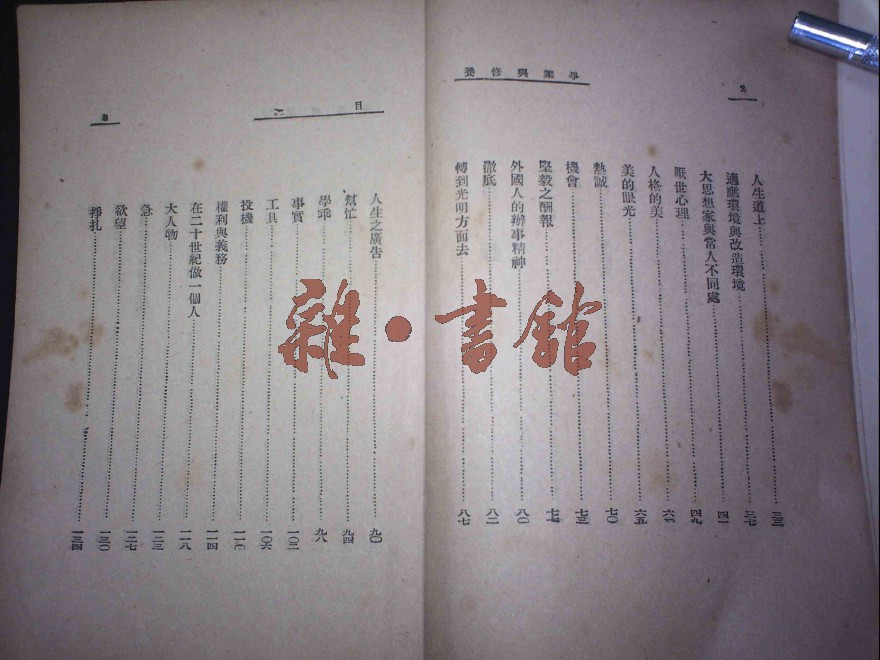 學業與修養
2
人生道上……三三
適應環境與改造環境……三七
大思想家與常人不同處……四一
厭世心理……四九
人格的美……六一
美的眼光……六五
熱誠……七〇
機會……七三
堅毅之酬報
外國人的辦事精神……八〇
澈底……八二
轉到光明方面去……八七
目
人生之廣告……九〇
幫忙……九四
學乖……九八
事實……一〇二
工具……一〇六
投機……一一〇
權利與義務……一一四
在二十世紀做一個人……一一八
大人物……一二三
急……一二七
欲望……一三〇
掙扎……一三四
雜·書館